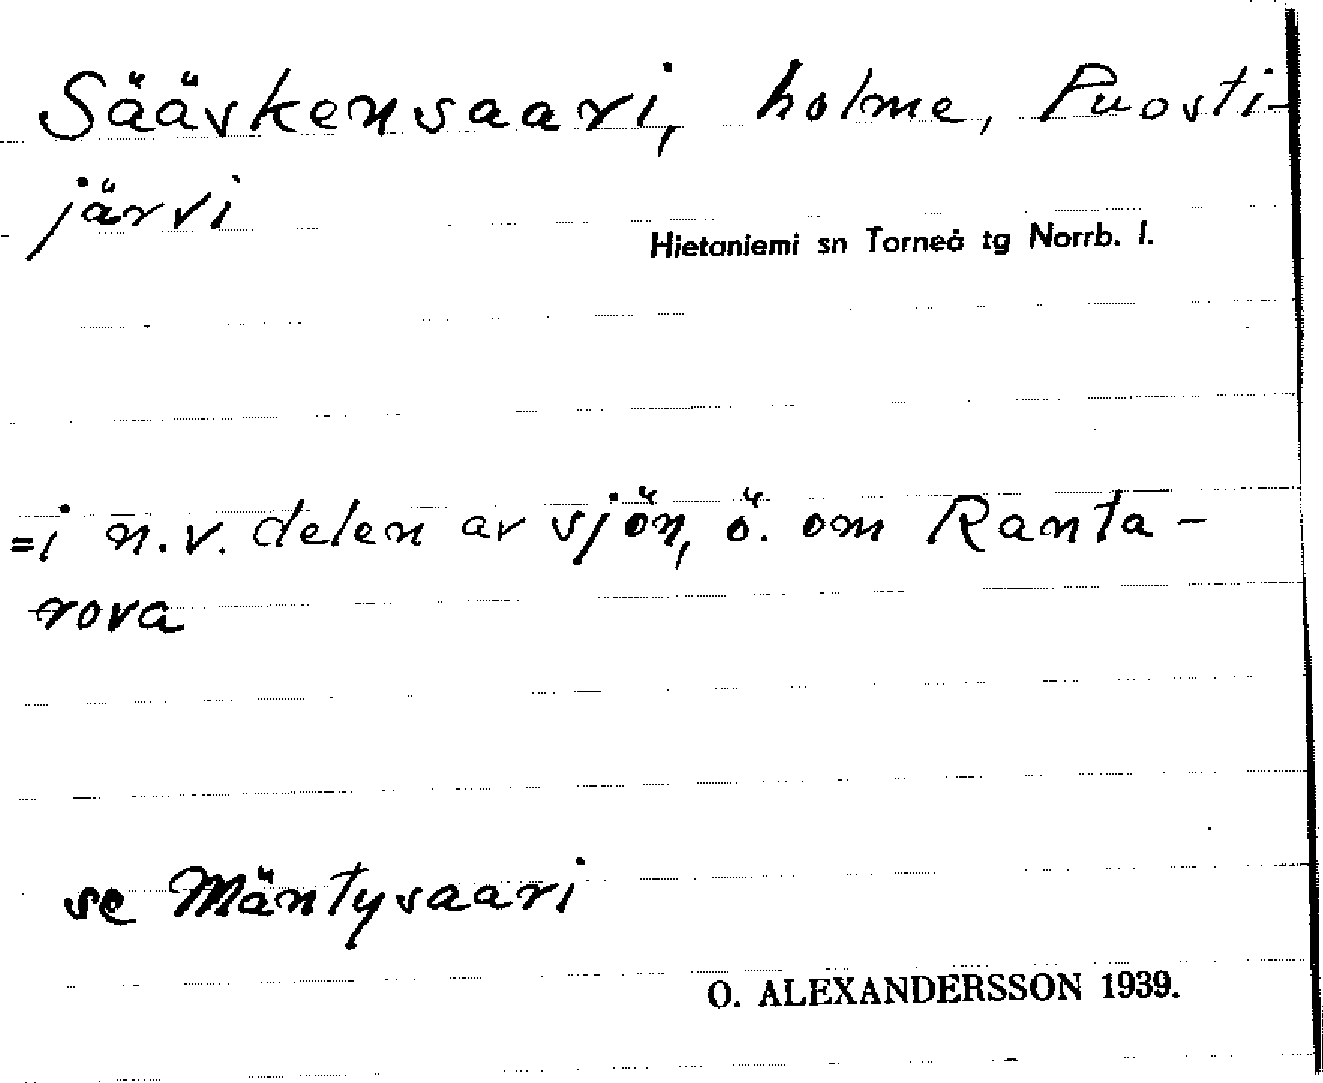 Sääskensaari, holme, Puosti-
järvi
Hietaniemi sn Torneå tg Norrb. l.
=i n.v. delen av sjön, ö. om Ranta-
rova
se Mäntysaari
O. ALEXANDERSSON 1939.